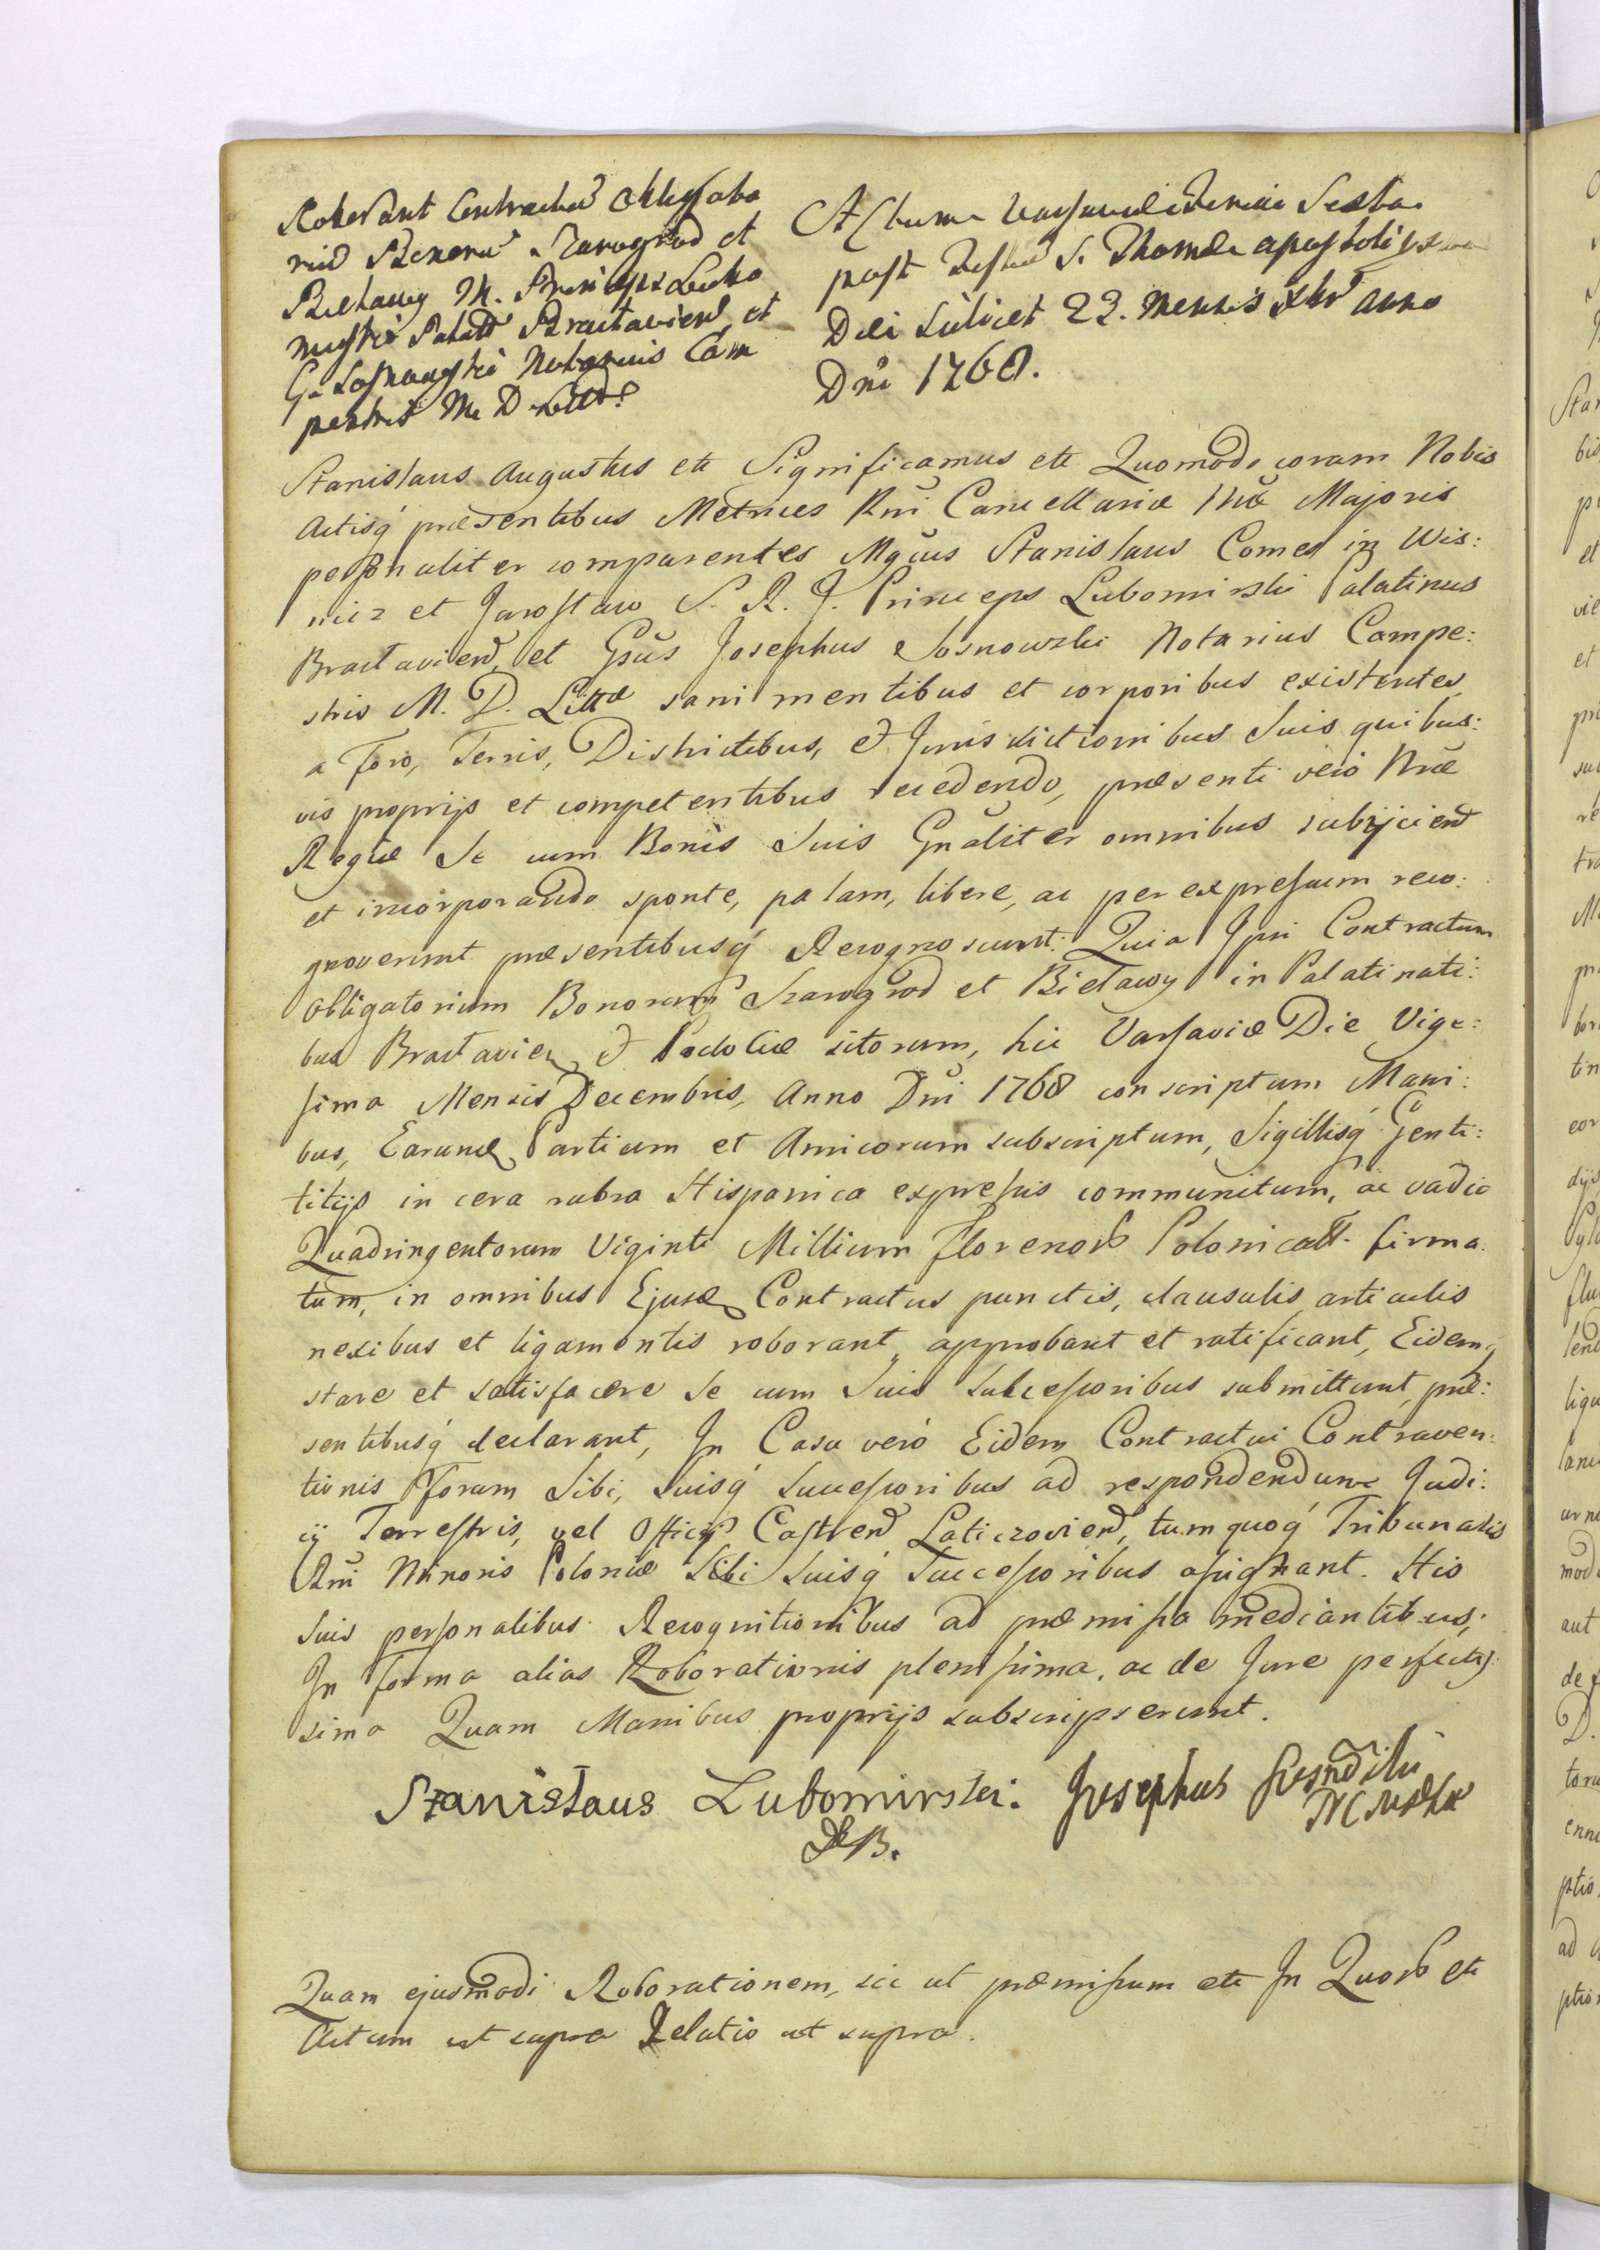 Roborant Contractus Obligato
rius Bonoru Szarogrod et
Bielawy M. Princeps Lubo
mirski Palatt Braclavien et
G. Sosnowski Notarius Cam
pestris M. D. Litt
Actum Varsaviæ Feria Sexta
post Festum S. Thomæ Apostoli
Dei scilicet 23. Mensis Xbr Anno
Dni 1768.
Stanislaus Augustus etc Significamus etc Quomodo coram Nobis
Actisq præsentibus Metrices Rni Cancellariæ Nræ Majoris
personaliter comparentes Mgcus Stanislaus Comes in Wis:
nicz et Jarosław S. R. J. Princeps Lubomirski Palatinus
Braclavien, et Gsus Josephus Sosnowski Notarius Campe:
stris M. D. Littæ sani mentibus et corporibus existentes
a Foro, Terris, Districtibus, & Jurisdictionibus Suis quibus:
vis proprijs et competentibus recedendo, præsenti verò Nræ
Regiæ Se cum Bonis Suis Gnaliter omnibus subijciend
et incorporando sponte, palam, libere, ac per expressum reco:
gnoverunt præsentibusq Recognoscunt: Quia Ipsi Contractum
Obligatorium Bonorum Szarogrod et Bielawy in Palatinati:
bus Braclavien & Podoliæ sitorum, hic Varsaviæ Die Vige:
sima Mensis Decembris, Anno Dni 1768 conscriptum Mani:
bus, Earund Partium et Amicorum subscriptum, Sigillisq Genti:
litijs in cera rubra Hispanica expressis communitum, ac vadio
Quadringentorum Viginti Millium Florenor Polonicall firma:
tum, in omnibus Ejusd Contractus punctis, clausulis articulis
nexibus et ligamentis roborant, approbant et ratificant, Eidemq
stare et satisfacere Se cum Suis Successoribus submittunt, præ:
sentibusq declarant, In Casu verò Eidem Contractui Contraven:
tionis Forum Sibi, Suisq Successoribus ad respondendum Judi:
cij Terrestris, vel Officij Castren Laticzovien, tum quoq Tribunalis
Rni Minoris Poloniæ Sibi Suisq Successoribus assignant. His
Suis personalibus Recognitionibus ad præmissa mediantibus;
In Forma alias Roborationis plenissima, ac de Jure perfectis:
sima Quam Manibus proprijs subscripserunt.
Stanislaus Lubomirski. Josephus Sosnowski
Quam ejusmodi Roborationem, sic ut præmissum etc In Quor etc
Actum ut supra Relatio ut supra.